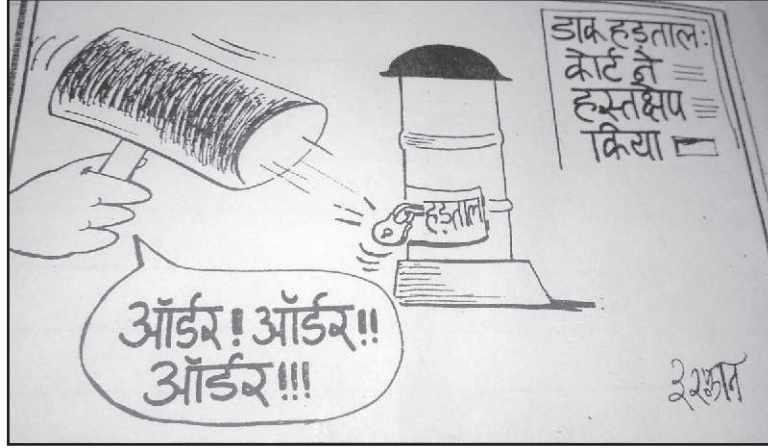 डाक हड़ताल:
कोर्ट ने
हस्तक्षेप
किया
हड़ताल
ऑर्डर! ऑर्डर!!
ऑर्डर!!!
इरफ़ान